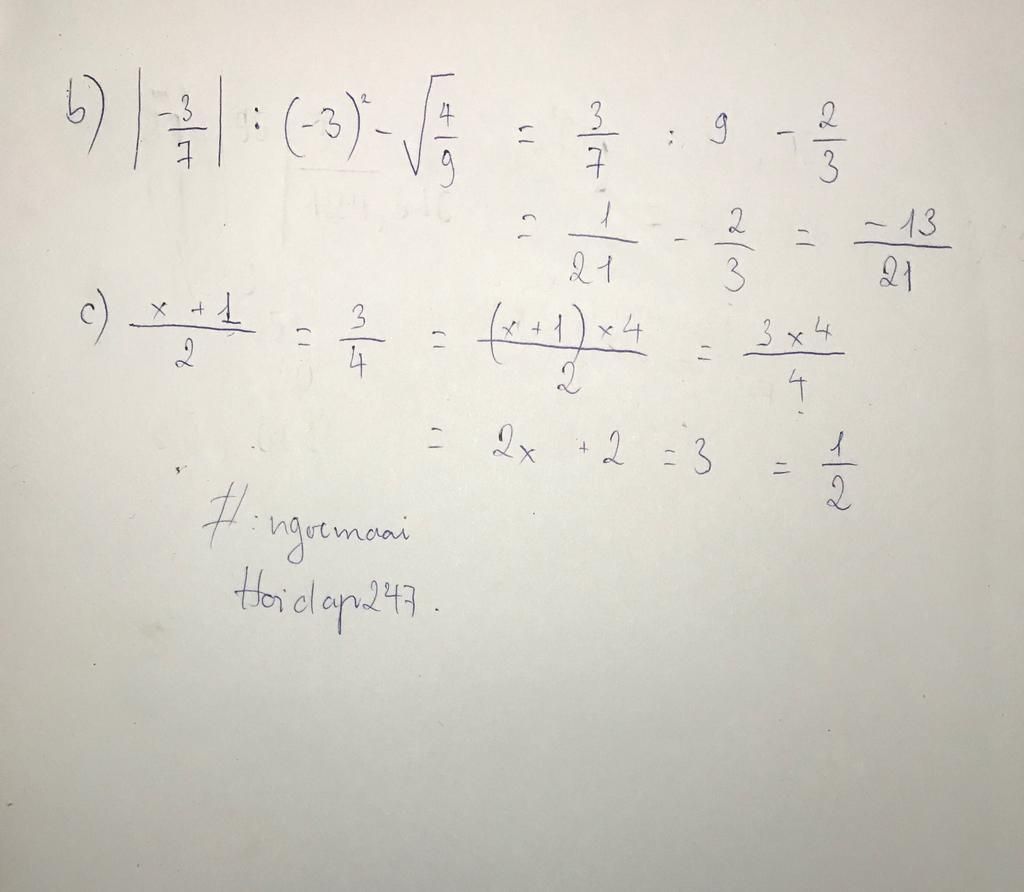 b) |-3/7| : (-3)² - √(4/9) = 3/7 : 9 - 2/3
= 1/21 - 2/3 = -13/21
c) (x + 1)/2 = 3/4 = ((x + 1) x 4)/2 = (3 x 4)/4
= 2x + 2 = 3 = 1/2
#: ngocmaai
Hoidap247.